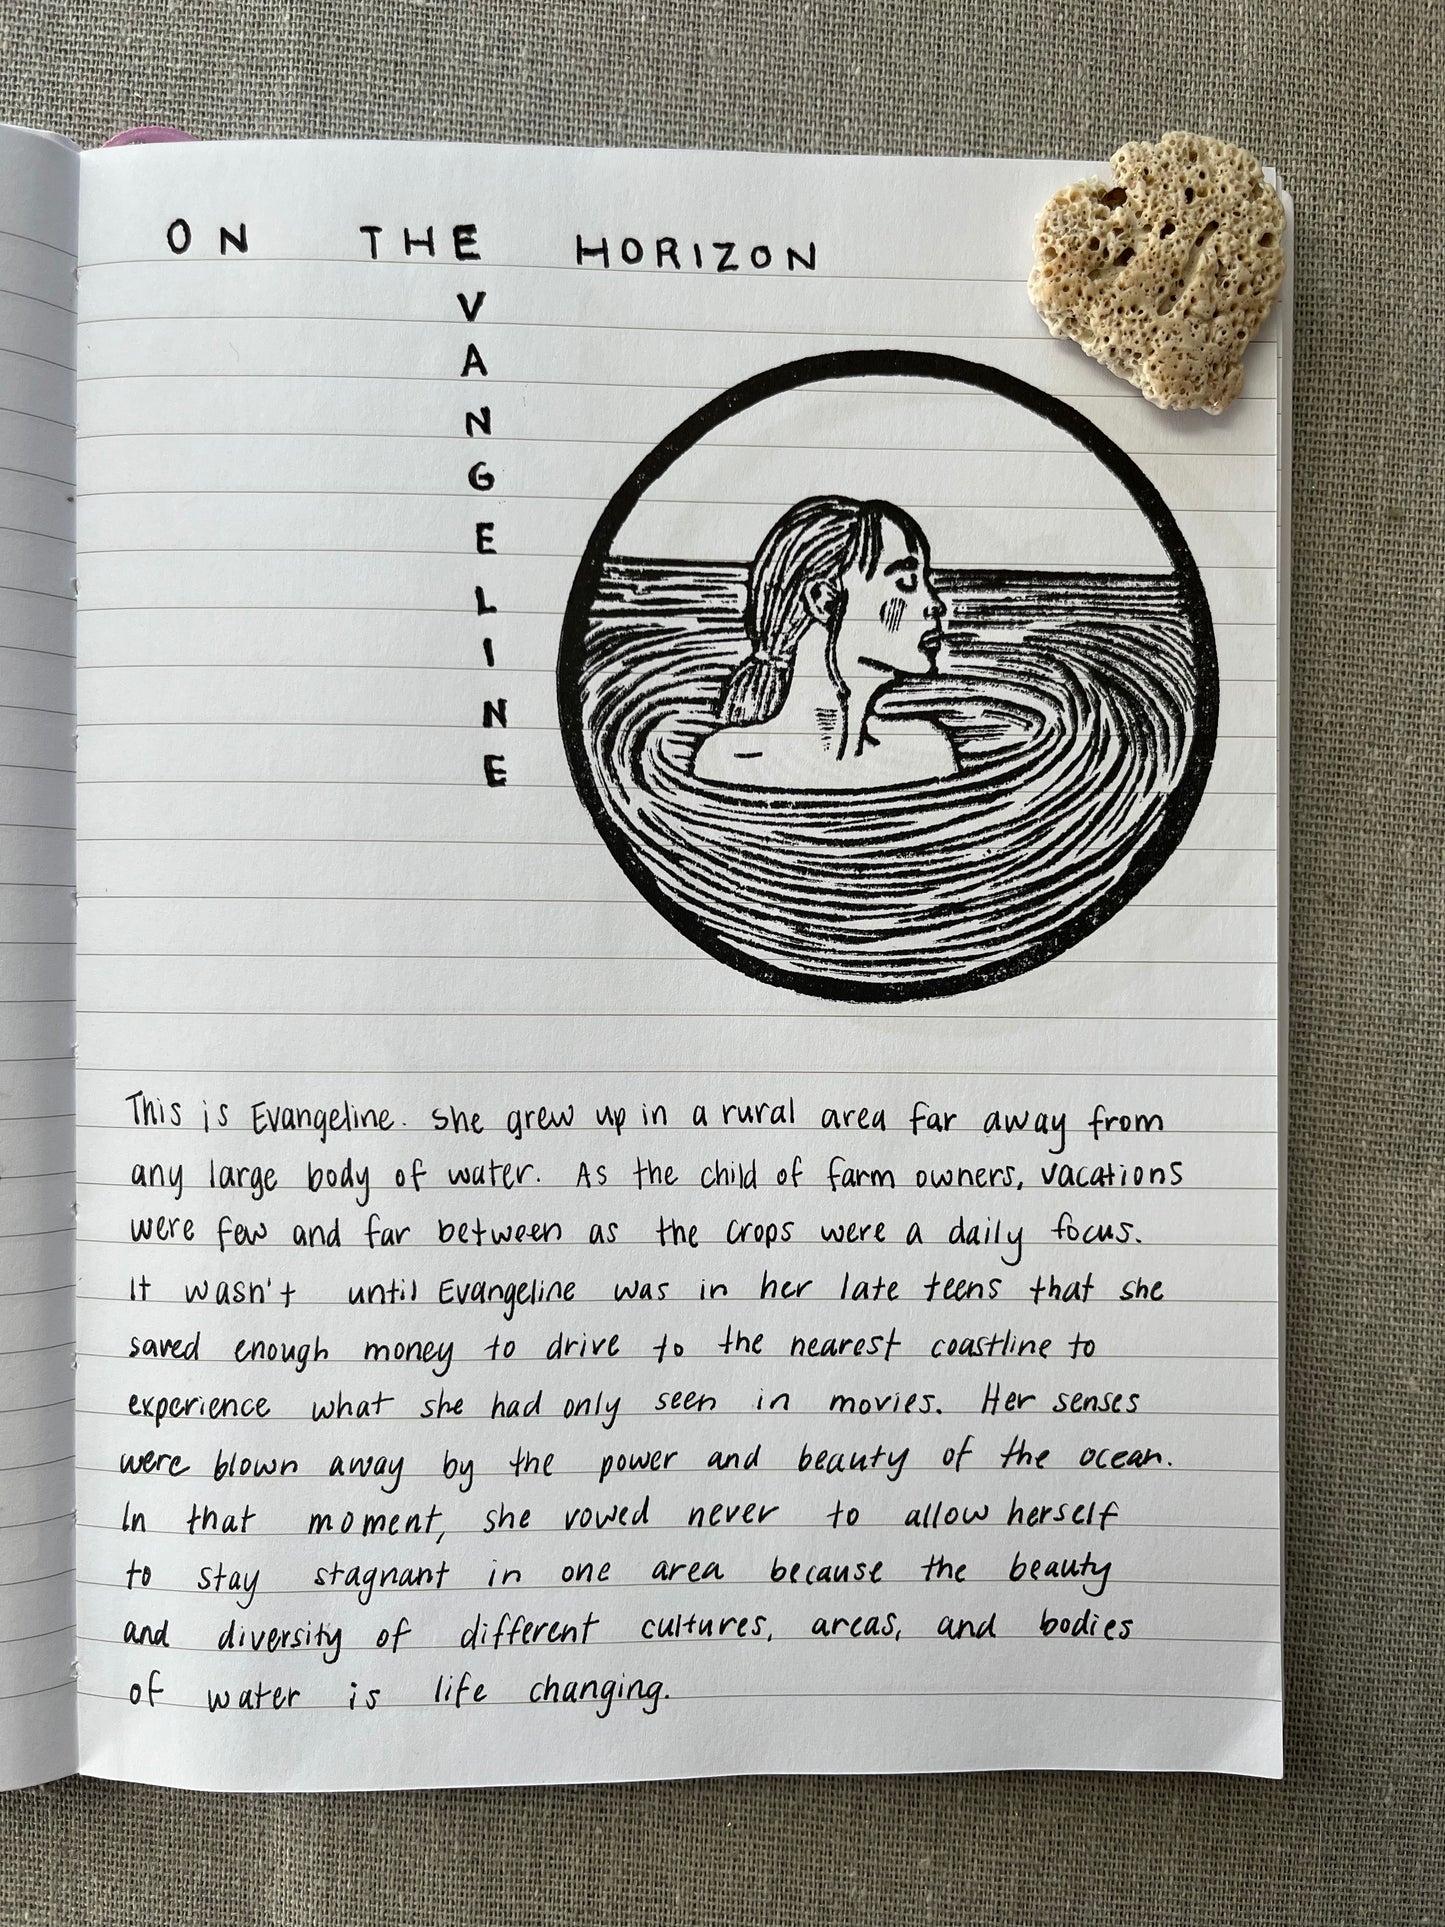 ON THE HORIZON
V
A
N
G
E
L
I
N
E
This is Evangeline. She grew up in a rural area far away from
any large body of water. As the child of farm owners, vacations
were few and far between as the crops were a daily focus.
It wasn't until Evangeline was in her late teens that she
saved enough money to drive to the nearest coastline to
experience what she had only seen in movies. Her senses
were blown away by the power and beauty of the ocean.
In that moment, she vowed never to allow herself
to stay stagnant in one area because the beauty
and diversity of different cultures, areas, and bodies
of water is life changing.